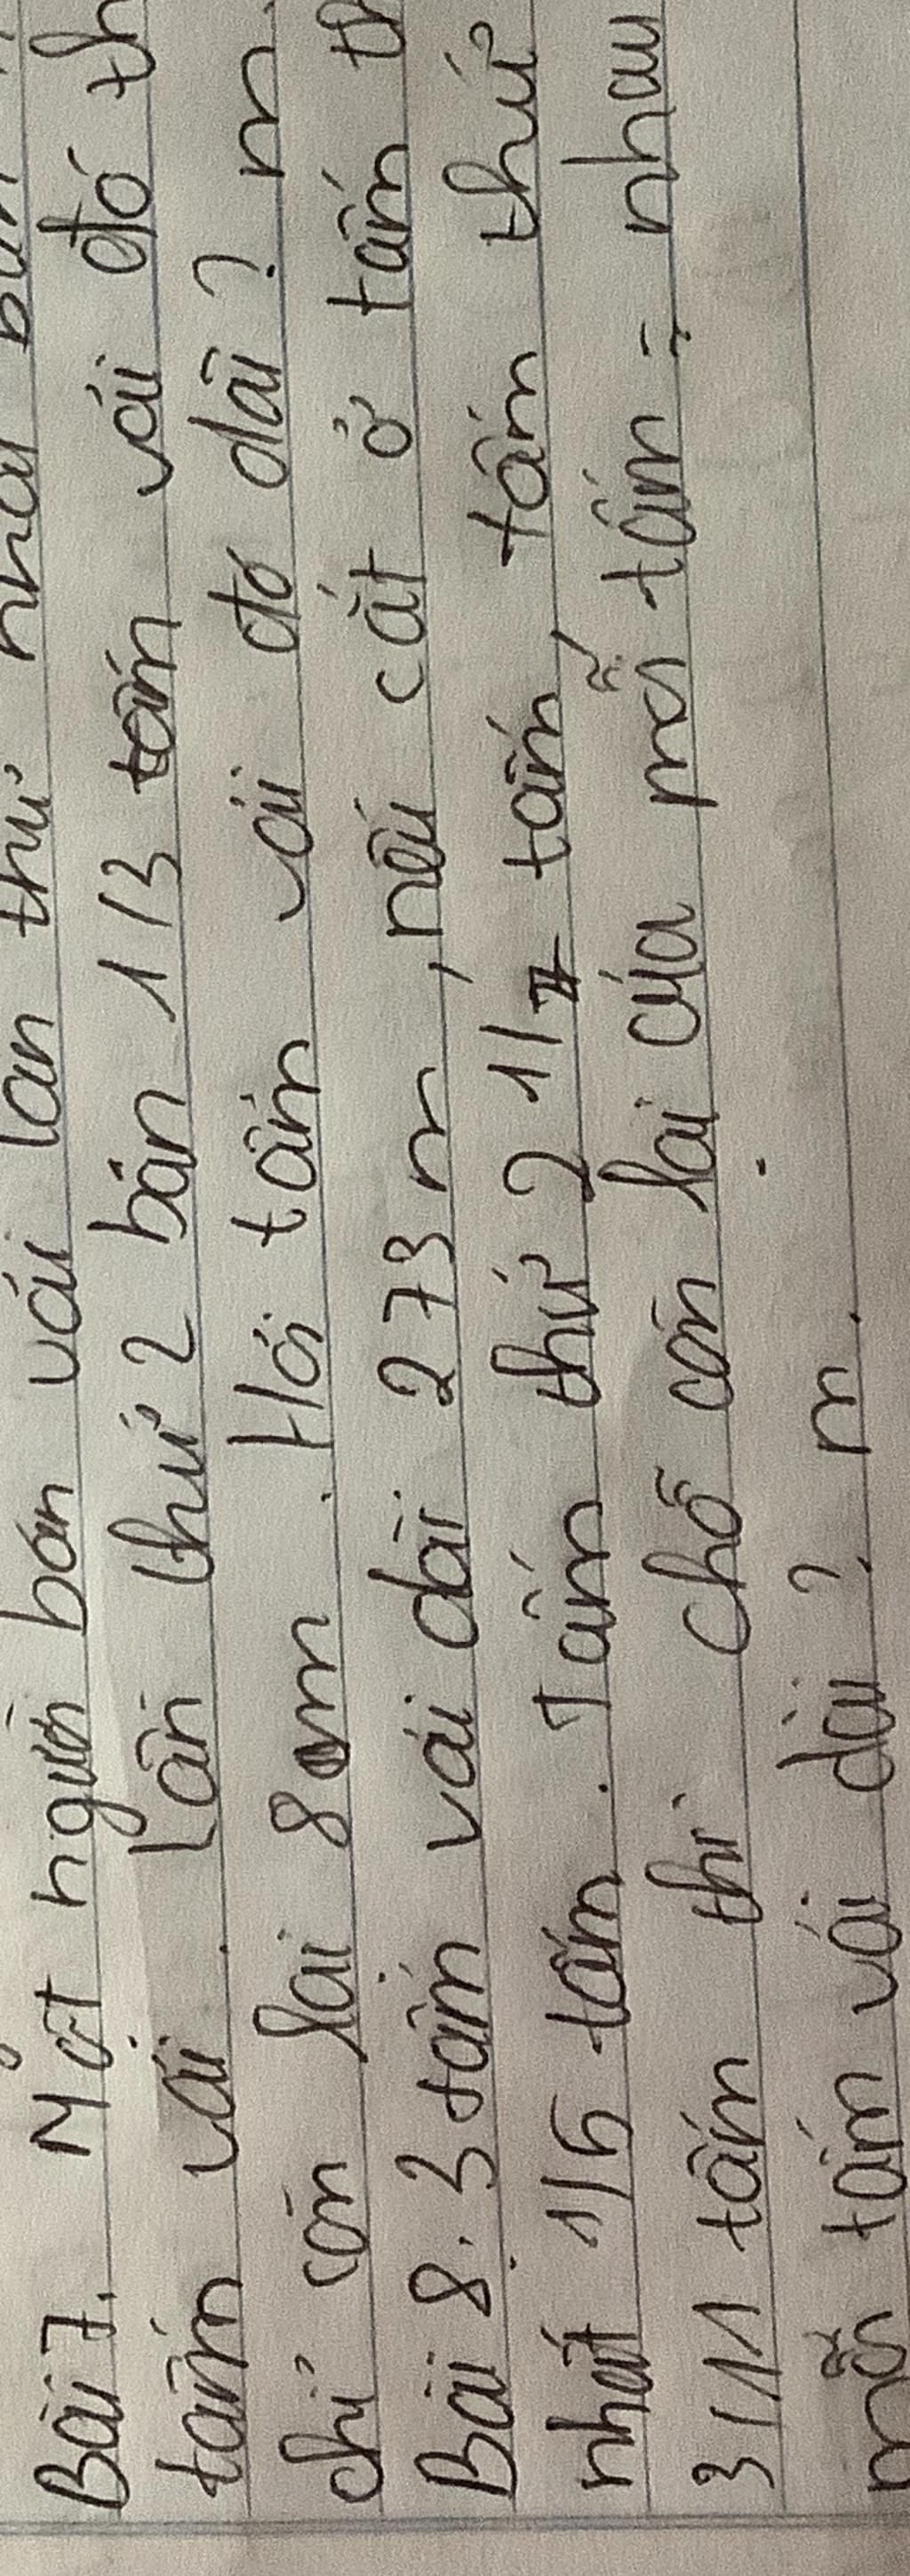 Bài 7. Một người bán vải lần thứ nhất bán
tấm vải. Lần thứ 2 bán 1/3 tấm vải đó th
chỉ còn lại 8m. Hỏi tấm vải đó dài? m.
Bài 8. 3 tấm vải dài 273 m, nếu cắt ở tấm th
nhất 1/6 tấm. Tấm thứ 2 1/7 tấm, tấm thứ
3 1/11 tấm thì chỗ còn lại của mỗi tấm = nhau
mỗi tấm vải dài? m.